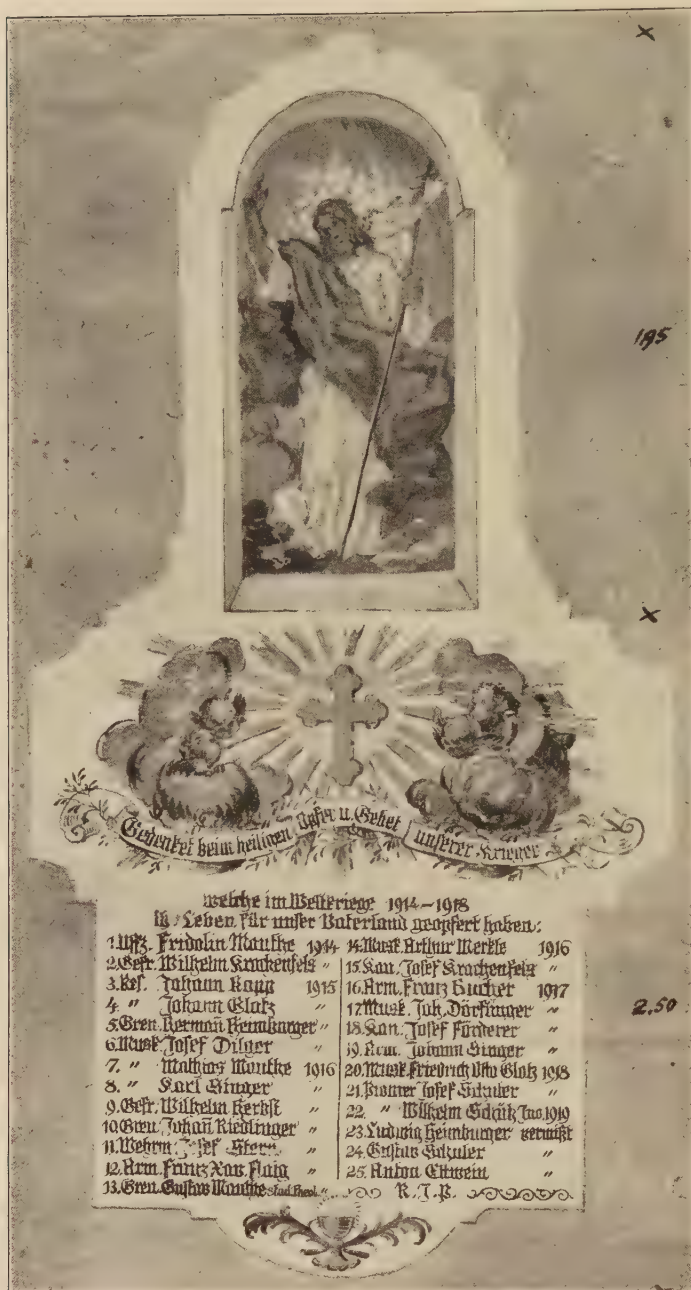 ×
195
×
Gedenket beim heiligen Opfer u. Gebet unserer Krieger
welche im Weltkriege 1914–1918
ih. Leben für unser Vaterland geopfert haben:
1. Uffz. Fridolin Mauthe 1914
2. Gefr. Wilhelm Krachenfels "
3. Res. Johann Rapp 1915
4. " Johann Glatz "
5. Gren. Hermañ Heimburger "
6. Musk. Josef Dilger "
7. " Mathias Mauthe 1916
8. " Karl Singer "
9. Gefr. Wilhelm Herbst "
10. Gren. Johañ Riedlinger "
11. Wehrm. Josef Stern "
12. Arm. Franz Xav. Flaig "
13. Gren. Gustav Mauthe stud. theol. "
14. Musk. Arthur Merkle 1916
15. Kan. Josef Krachenfels "
16. Arm. Franz Bucher 1917
17. Musk. Joh. Dörflinger "
18. Kan. Josef Förderer "
19. Arm. Johann Singer "
20. Musk. Friedrich Otto Glatz 1918
21. Pionier Josef Schuler "
22. " Wilhelm Schütz 1919
23. Ludwig Heimburger vermißt
24. Gustav Schuler "
25. Anton Ettwein "
R. I. P.
2.50